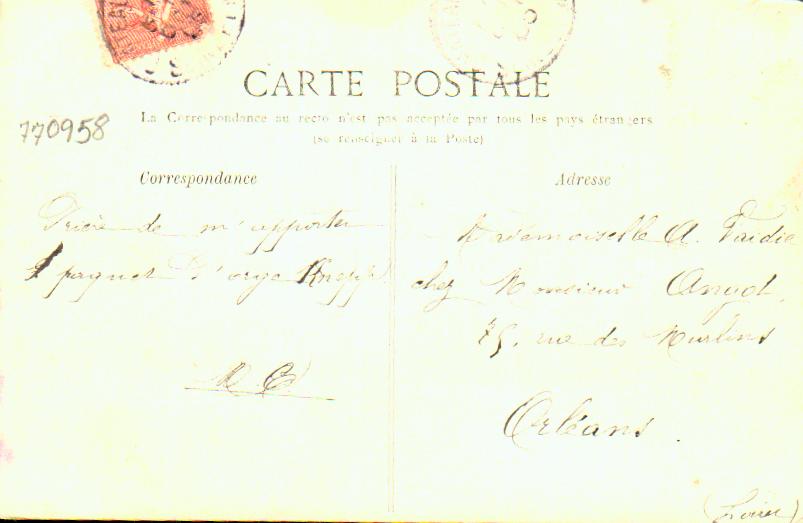 CARTE POSTALE
770958
La Correspondance au recto n'est pas acceptée par tous les pays étrangers
(se renseigner à la Poste)
Correspondance
Prière de m'apporter
1 paquet d'orge Kneipp
Adresse
Mademoiselle A.
chez Monsieur
75, rue des Murlins
Orléans.
(Loiret)